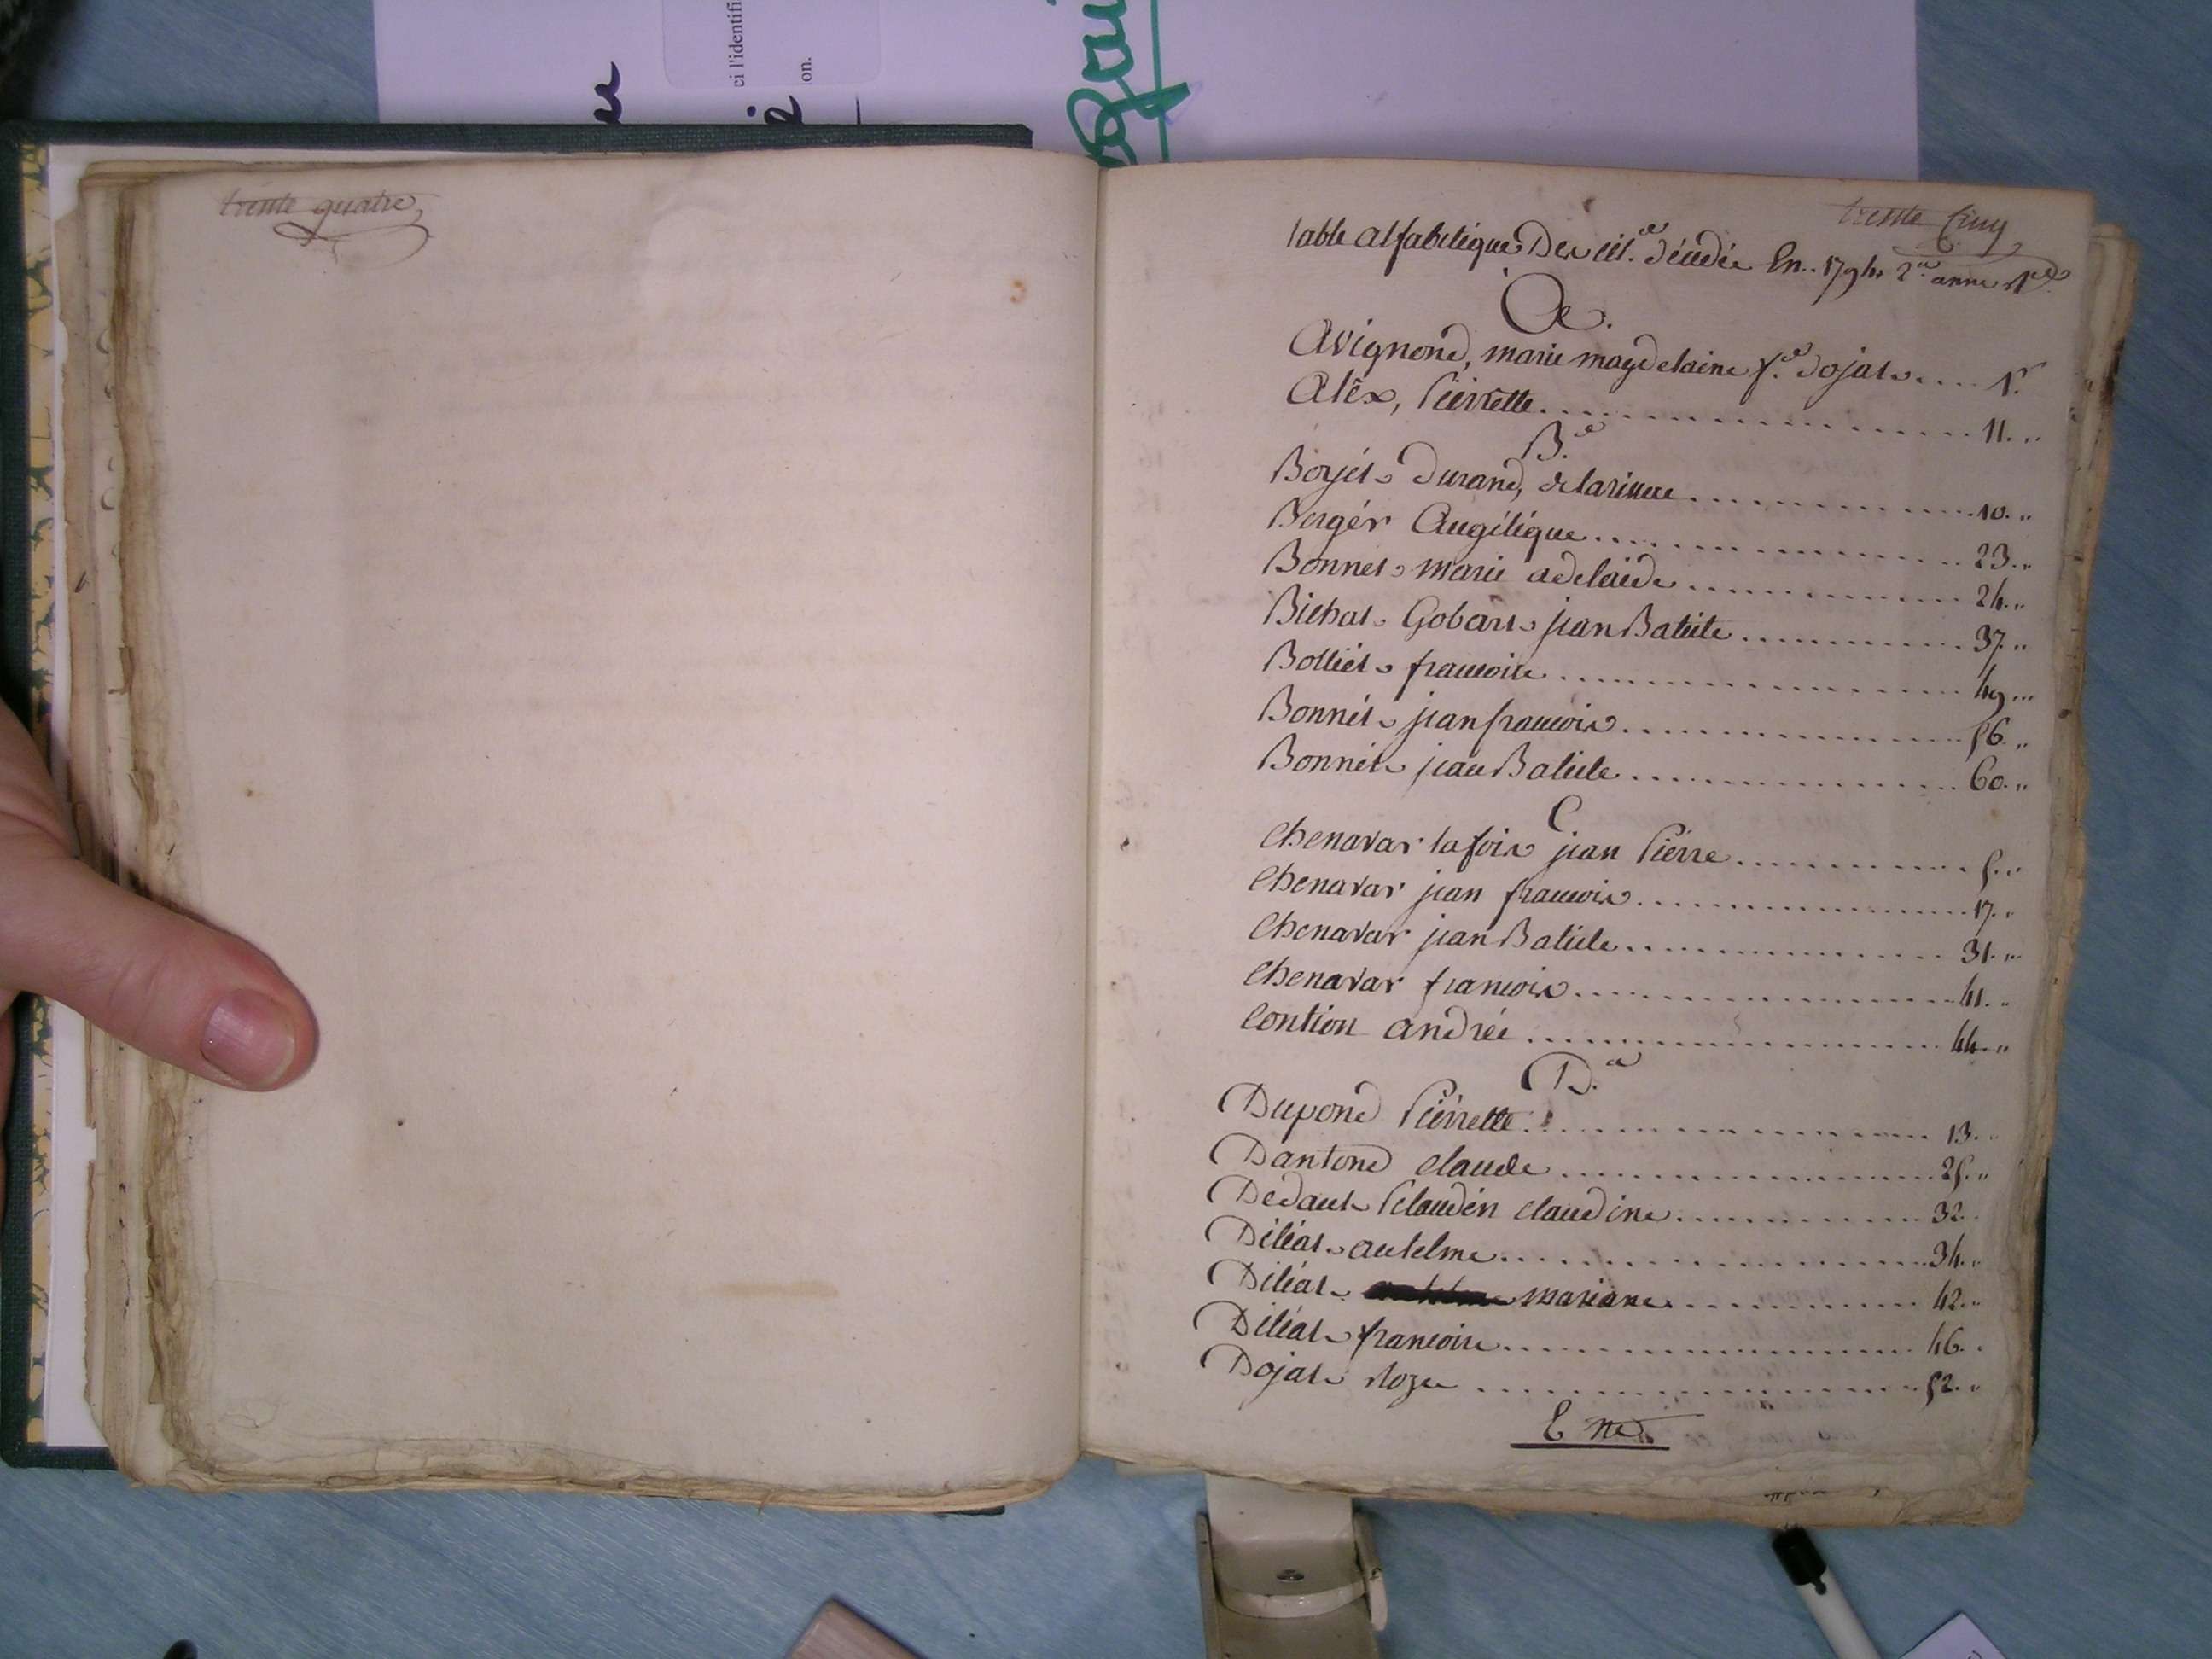 ci l'identifi
on.
trente quatre
trente Cinq
table alfabetique Des cit. décédée En.. 1794 2.e anne R.e
A.
Avignond, marie magdelaine f.e dojat .... 1.r
Alêx, Pierrette .... 11...
B.e
Borjét Durand, .... 10..
Bergér Angélique .... 23..
Bonnet marie adelaide .... 24..
Bichat Gobart jean Batiste .... 37..
Bolliét francoise .... 49...
Bonnét jean francois .... 56..
Bonnét jean Batiste .... 60..
C
Chenavar lafoix jean Piérre .... 5..
Chenavar jean francois .... 17..
Chenavar jean Batiste .... 31..
Chenavar francois .... 41..
Contion andrée .... 44..
D.e
Dupond Piérrette .... 13..
Dantond claude .... 25..
Dedaut claudine .... 32.
Diléat antelme .... 34..
Diléat mariane .... 42..
Diléat francoise .... 46..
Dojat Roze .... 52..
E